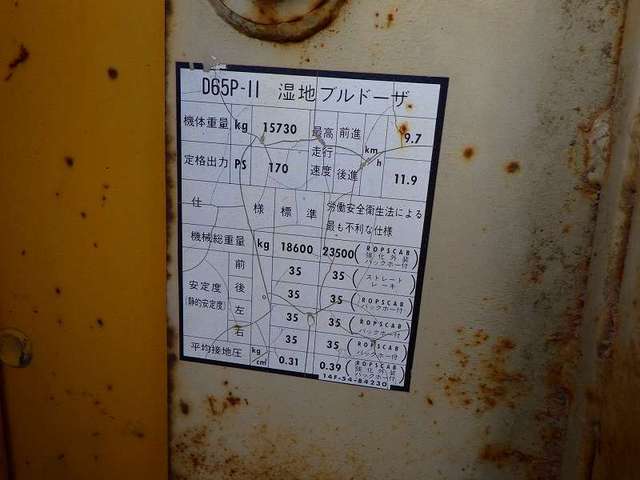 D65P-11 湿地ブルドーザ
機体重量 kg 15730 最高走行速度 前進 km/h 9.7
定格出力 PS 170 後進 11.9
仕様 標準 労働安全衛生法による最も不利な仕様
機械総重量 kg 18600 23500 (ROPSCAB 強化外装 バックホー付)
安定度 (静的安定度) 前 35 35 (ストレート レーキ)
後 35 35 (ROPSCAB バックホー付)
左 35 35 (ROPSCAB バックホー付)
右 35 35 (ROPSCAB バックホー付)
平均接地圧 kg/cm 0.31 0.39 (ROPSCAB 強化外装 バックホー付)
14F-54-84230